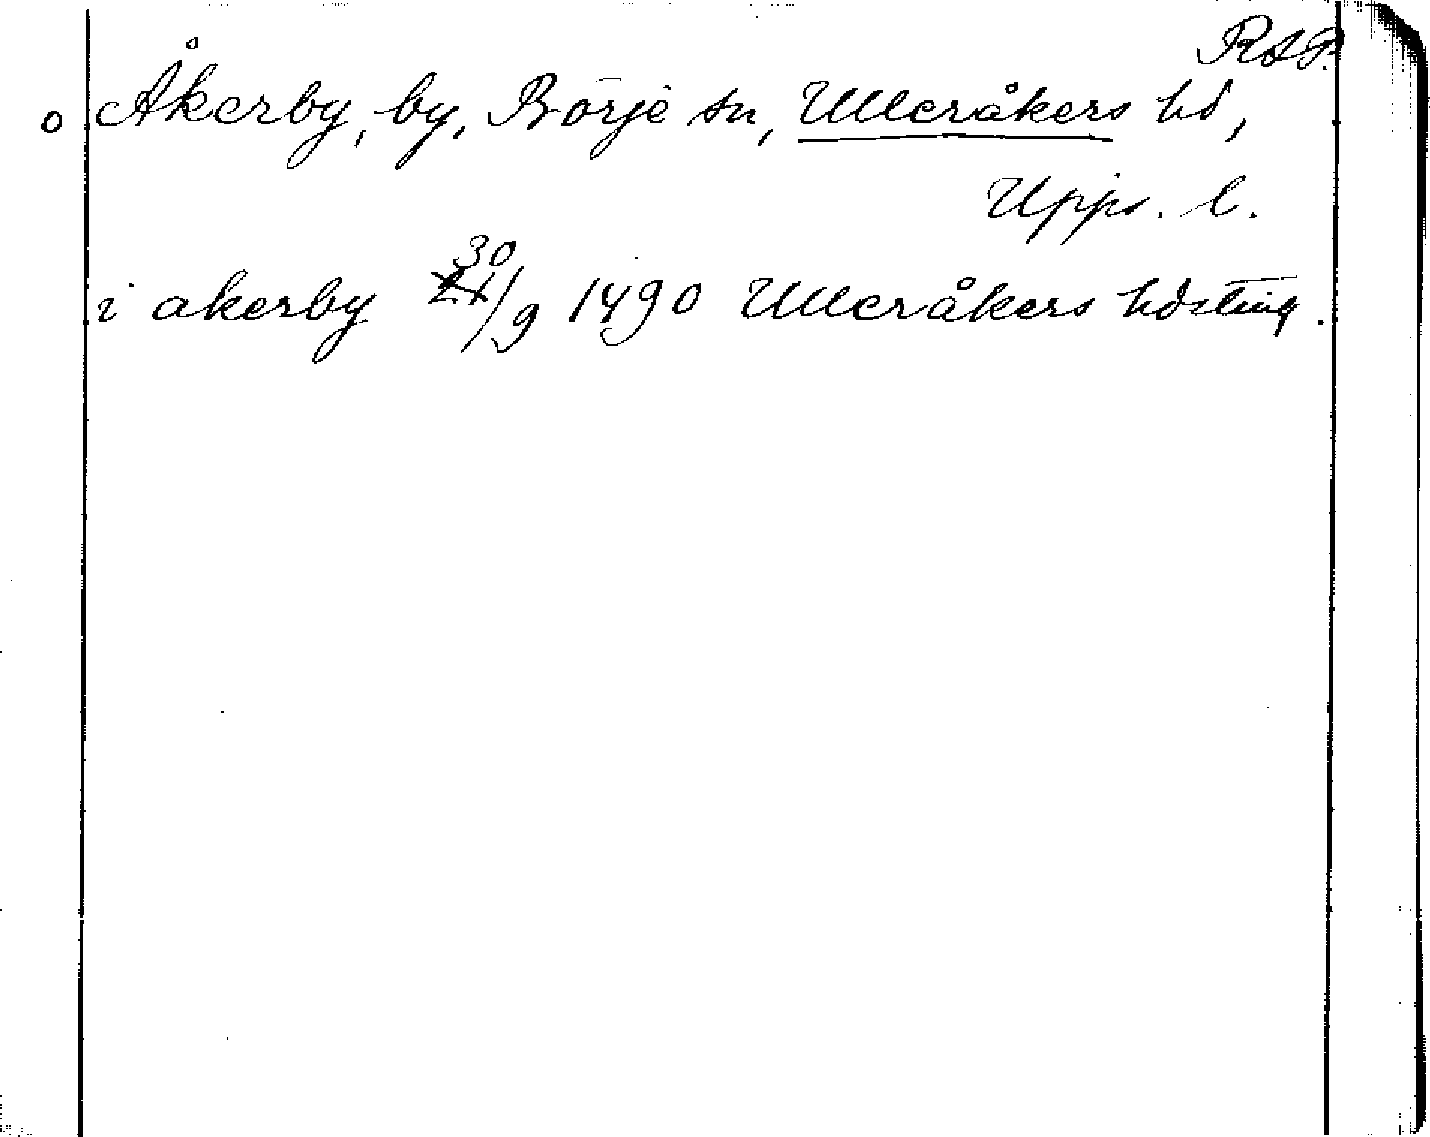 RAP.
o Åkerby, by, Börje sn, Ulleråkers hd,
Upps. l.
i akerby 30/9 1490 Ulleråkers hdsting.